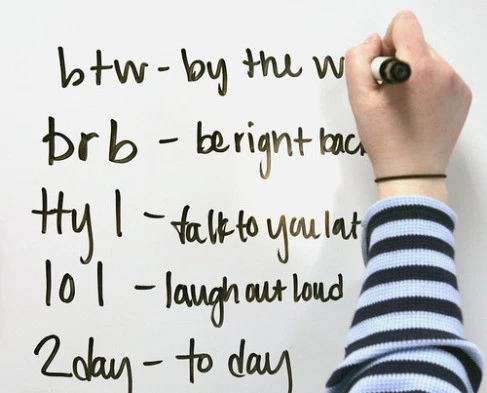 btw - by the w
brb - be right bac
ttyl - talk to you lat
lol - laugh out loud
2day - to day